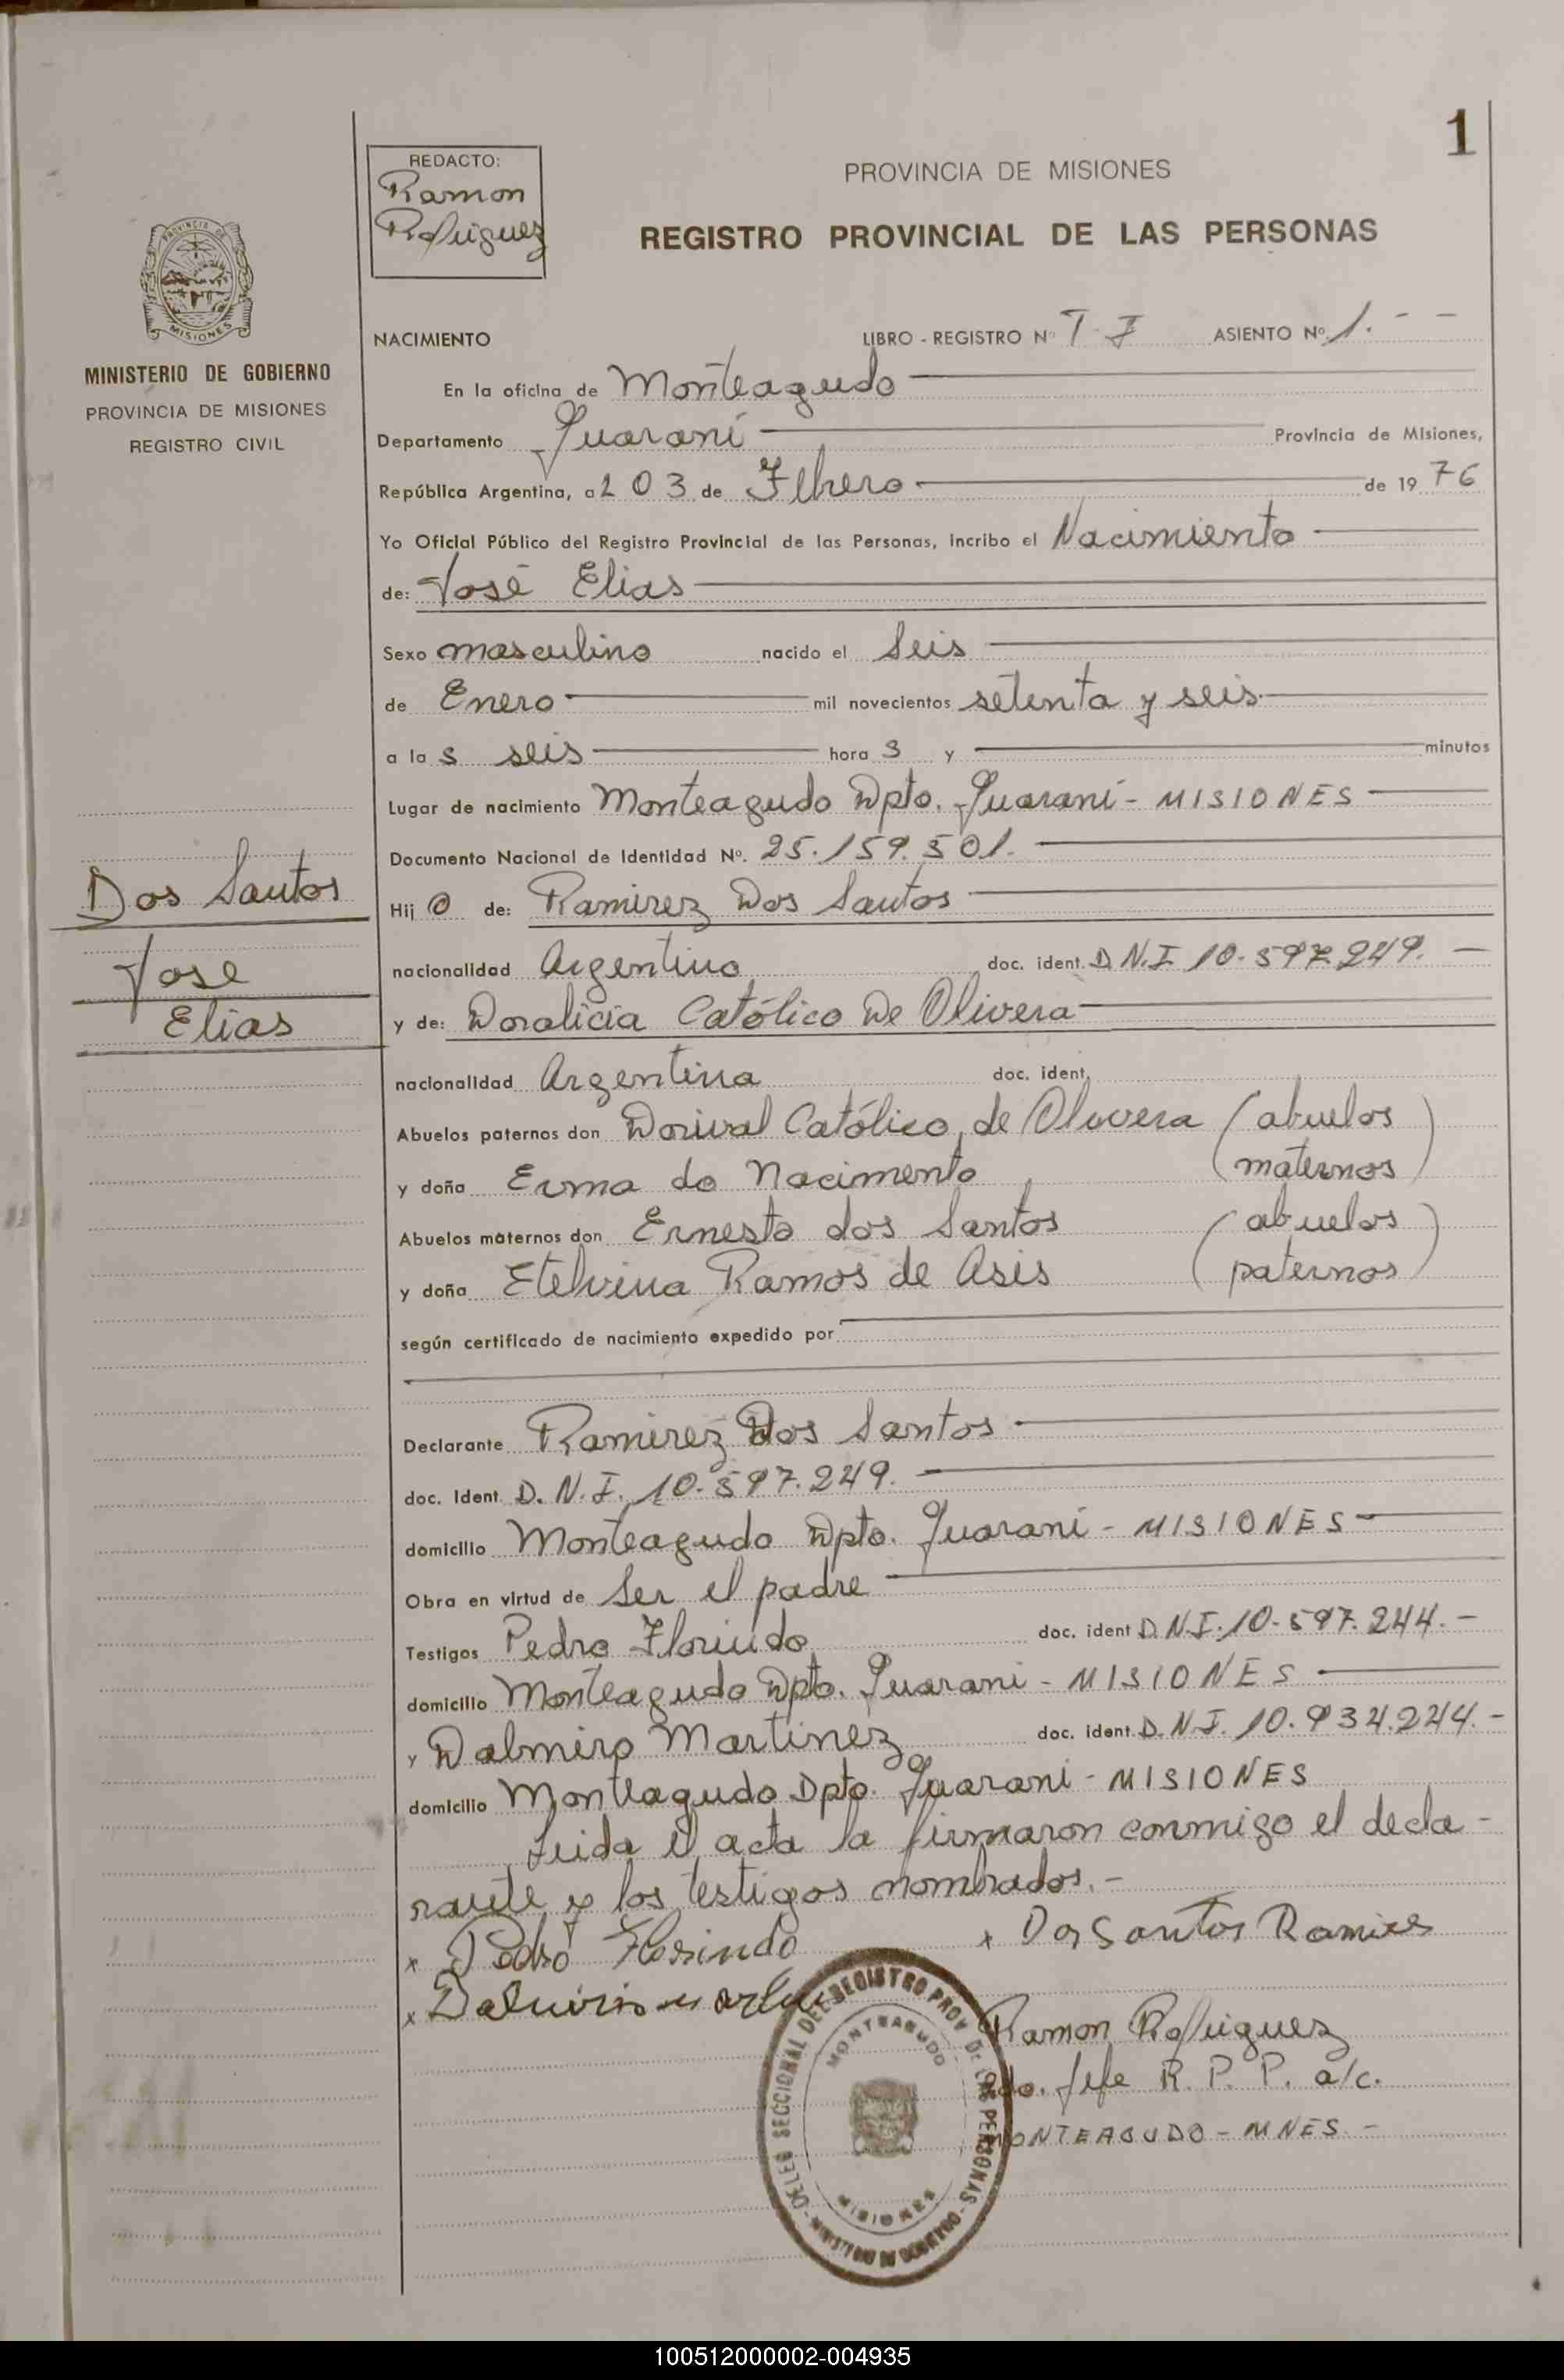 1
REDACTO:
Ramon
Rodriguez
PROVINCIA DE MISIONES
REGISTRO PROVINCIAL DE LAS PERSONAS
PROVINCIA DE
MISIONES
MINISTERIO DE GOBIERNO
PROVINCIA DE MISIONES
REGISTRO CIVIL
NACIMIENTO LIBRO - REGISTRO Nº T-I ASIENTO Nº 1. - -
En la oficina de Monteagudo
Departamento Guaraní Provincia de Misiones,
República Argentina, a L 03 de Febrero de 19 76
Yo Oficial Público del Registro Provincial de las Personas, incribo el Nacimiento
de: José Elias
Sexo masculino nacido el Seis
de Enero mil novecientos setenta y seis
a la s seis hora s y minutos
Lugar de nacimiento Monteagudo Dpto. Guaraní - MISIONES
Documento Nacional de Identidad Nº. 25.159.501.
Dos Santos
Jose
Elias
Hij o de: Ramirez Dos Santos
nacionalidad Argentino doc. ident. D.N.I 10.597.249. -
y de: Doralicia Católico De Olivera
nacionalidad Argentina doc. ident.
Abuelos paternos don Dorival Católico, de Olivera (abuelos
y doña Erma do Nacimento maternos)
Abuelos maternos don Ernesto dos Santos (abuelos
y doña Etelvina Ramos de Asis paternos)
según certificado de nacimiento expedido por
Declarante Ramirez Dos Santos
doc. Ident D.N.I. 10.597.249.
domicilio Monteagudo Dpto. Guaraní - MISIONES
Obra en virtud de Ser el padre
Testigos Pedro Florindo doc. ident D.N.I. 10.597.244. -
domicilio Monteagudo Dpto. Guarani - MISIONES
y Dalmiro Martinez doc. ident. D.N.I. 10.934.244. -
domicilio Monteagudo Dpto. Guarani - MISIONES
Leida el acta la firmaron conmigo el decla-
rante y los testigos nombrados. -
x Pedro Florindo x Dos Santos Ramires
x Dalmiro
DELEG SECCIONAL DEL REGISTRO PROV. DE LAS PERSONAS
MONTEAGUDO
MISIONES
MINISTERIO DE GOBIERNO
Ramon Rodriguez
Jefe R. P. P. a/c.
MONTEAGUDO - MNES. -
100512000002-004935